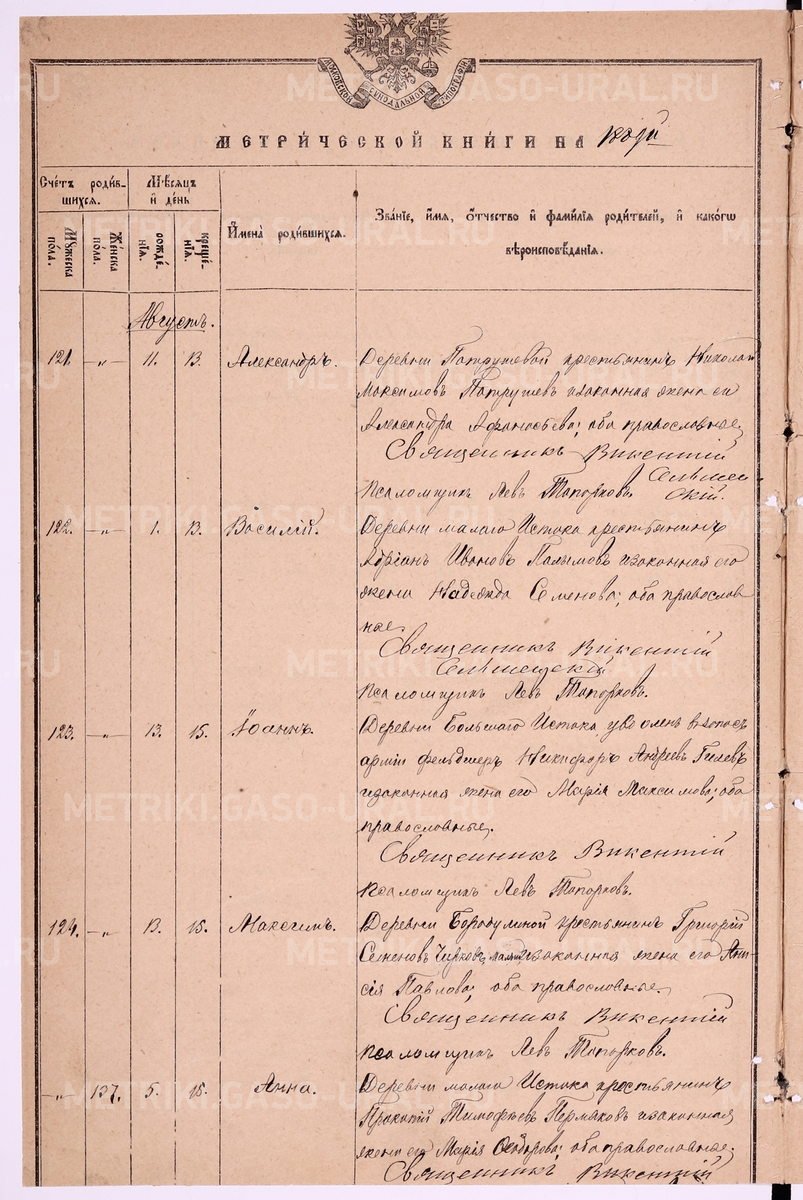 МОСКОВСКОЙ СѴНОДАЛЬНОЙ ТИПОГРАФІИ
МЕТРИ́ЧЕСКОЙ КНИ́ГИ НА
Сче́тъ роди́вшихся.
Мѣ́сяцъ и҆ де́нь
Мꙋ́жеска по́ла.
Же́нска по́ла.
рожде́нїѧ.
креще́нїѧ.
И҆мена̀ роди́вшихсѧ.
Зва́нїе, и҆́мѧ, ѻ҆́тчество и҆ фами́лїѧ роди́телей, и҆ како́гѡ
вѣроисповѣ́данїѧ.
Августъ.
121. —„— 11. 13. Александръ. Деревни Патрушевой крестьянинъ Николай
Максимовъ Патрушевъ и законная жена его
Александра Афанасьева; оба православные.
Священникъ Викентій
Сельменскій.
Псаломщикъ Левъ Топорковъ.
122. —„— 1. 13. Василій. Деревни малаго Истока крестьянинъ
Адріанъ Ивановъ и законная его
жена Надежда Семенова; оба православ
ные.
Священникъ Викентій
Сельменскій
Псаломщикъ Левъ Топорковъ.
123. —„— 13. 15. Іоаннъ. Деревни Большаго Истока уволенъ в запасъ
арміи фельдшеръ Никифоръ Андреевъ Гилевъ
и законная жена его Марія Максимова; оба
православные.
Священникъ Викентій
Псаломщикъ Левъ Топорковъ.
124. —„— 13. 15. Максимъ. Деревни Бородулиной крестьянинъ Григорій
Семеновъ Чирковъ и законная жена его Ани
сія Павлова; оба православные.
Священникъ Викентій
Псаломщикъ Левъ Топорковъ.
—„— 137. 5. 15. Анна. Деревни малаго Истока крестьянинъ
Прокопій Тимофѣевъ Пермяковъ и законная
жена его Марія Ѳедорова; оба православные.
Священникъ Викентій
METRIKI.GASO-URAL.RU